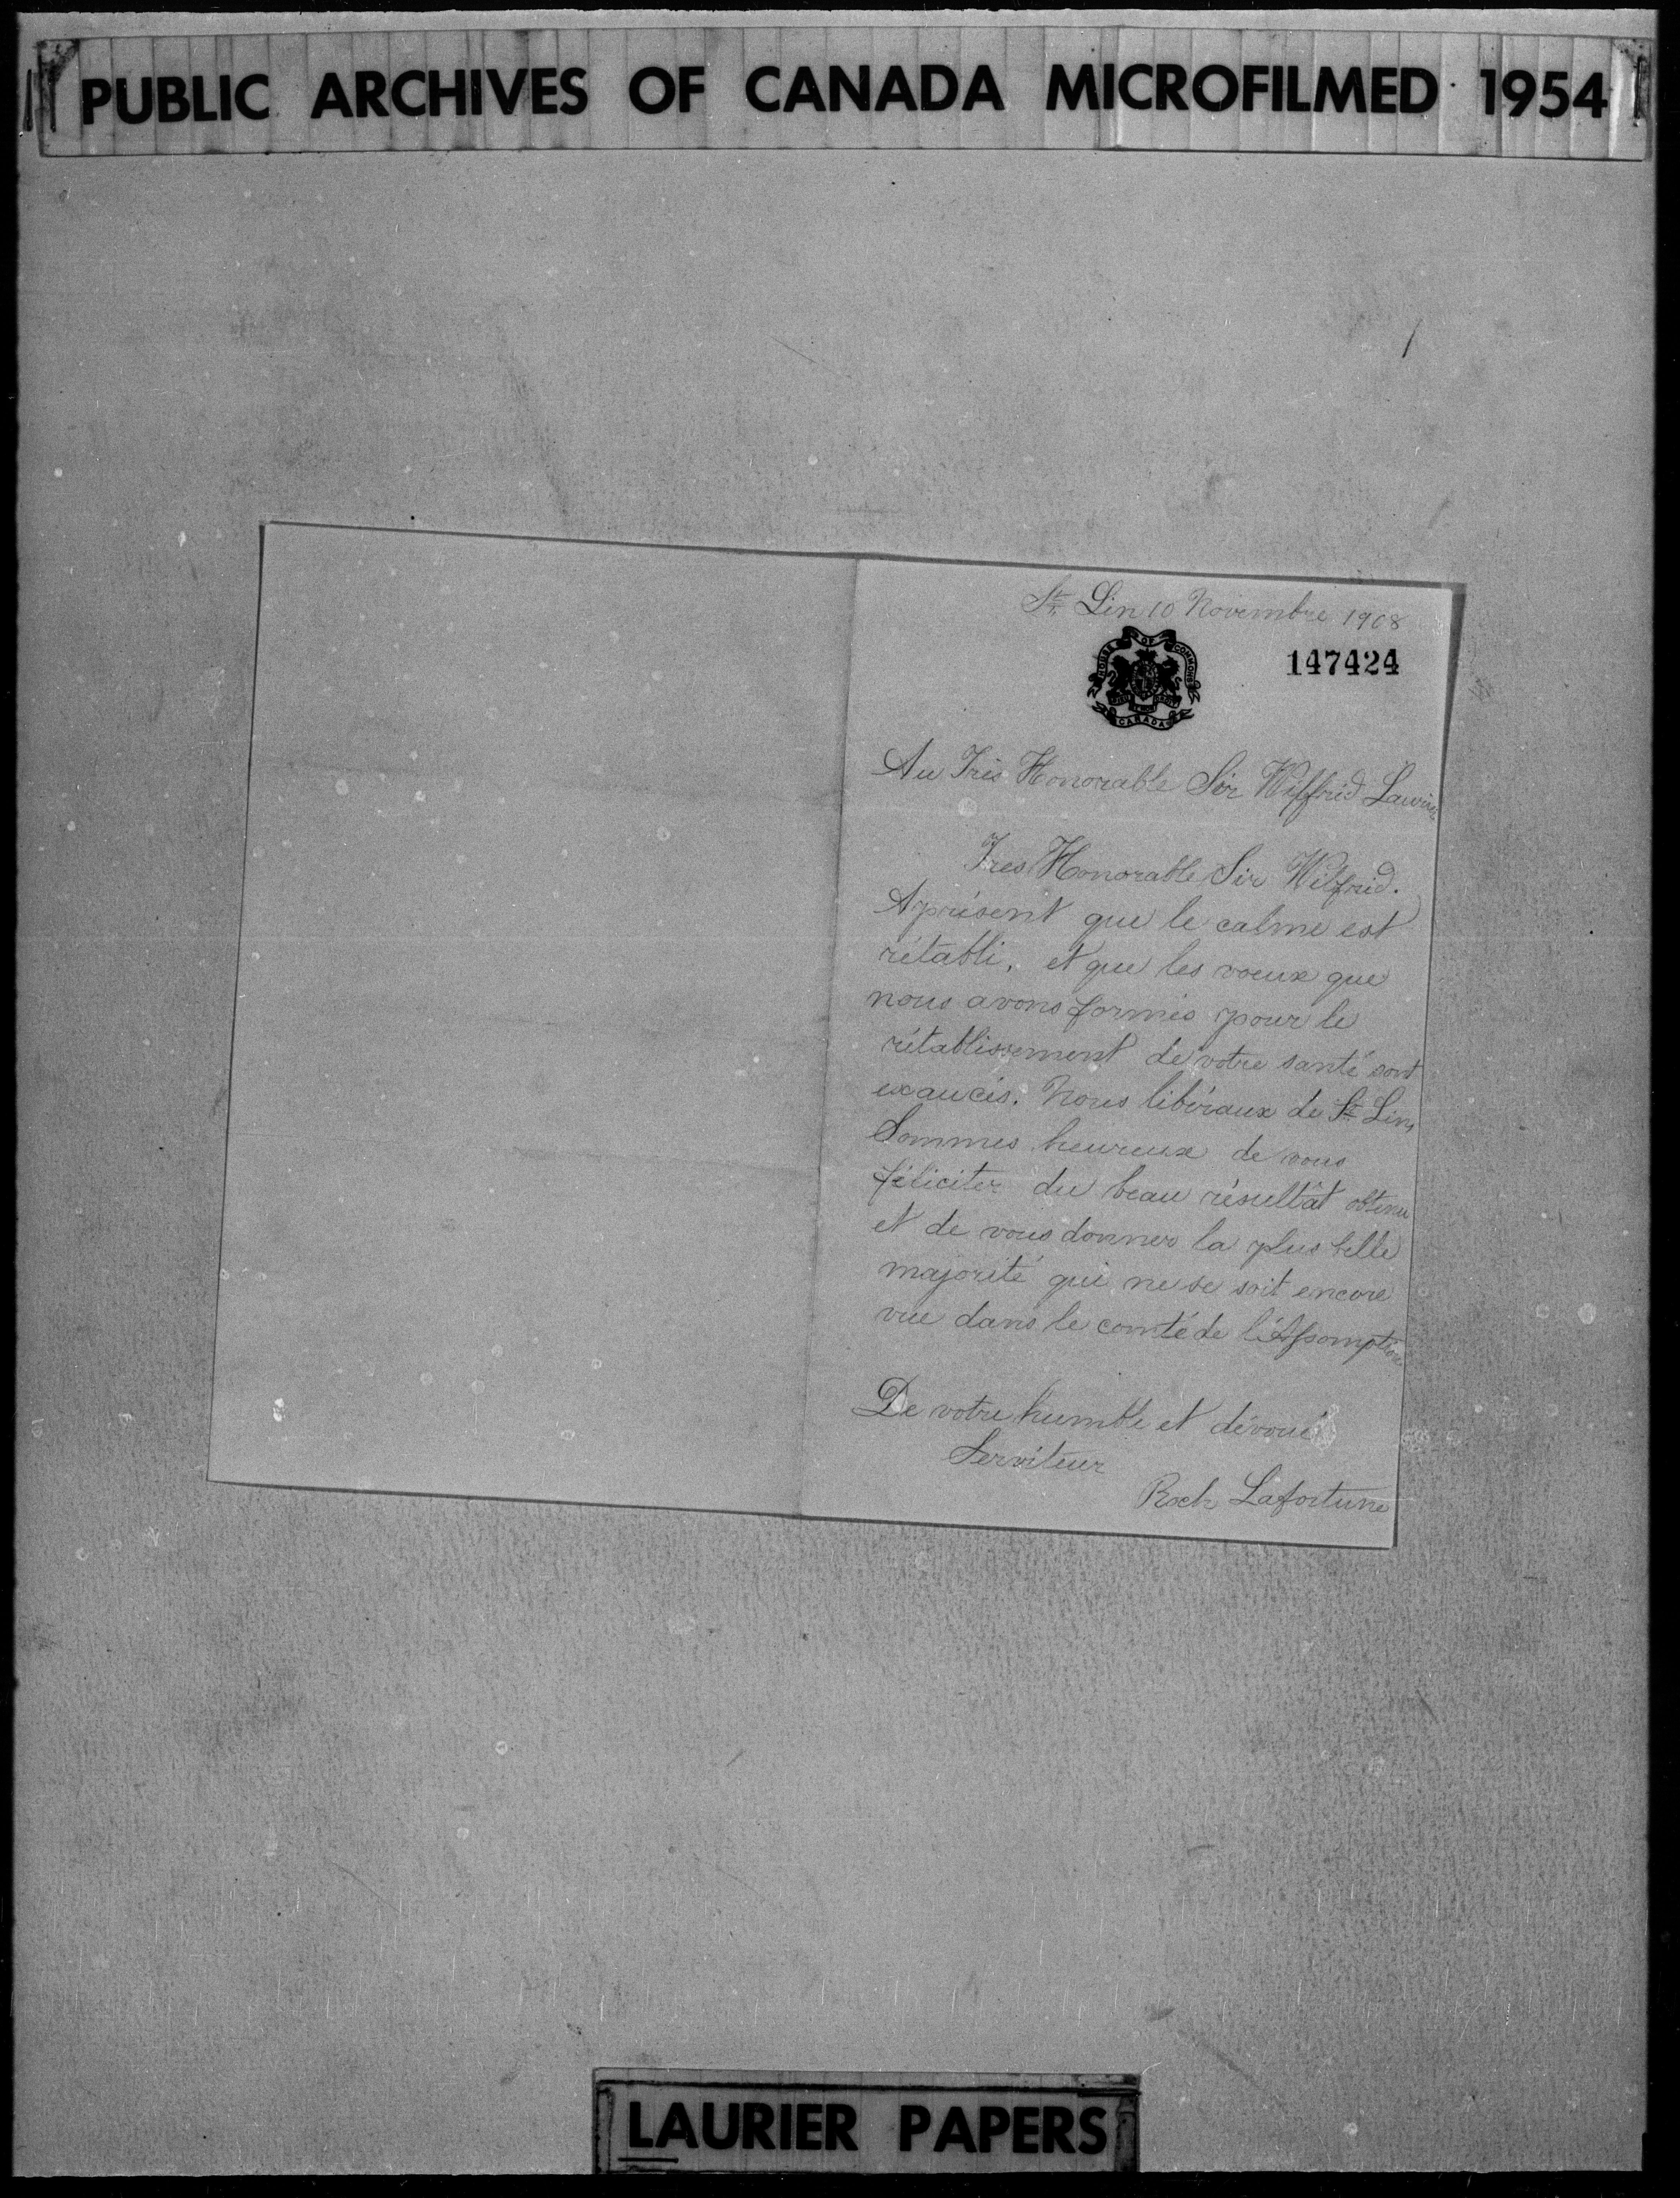 PUBLIC ARCHIVES OF CANADA MICROFILMED 1954
St Lin 10 Novembre 1908
HOUSE OF COMMONS
CANADA
147424
Au Très Honorable Sir Wilfrid Laurier
Tres Honorable Sir Wilfrid.
Aprésent que le calme est
rétabli, et que les voeux que
nous avons formés pour le
rétablissement de votre santé sont
exaucés. Nous libéraux de St Lin,
Sommes heureux de vous
féliciter du beau résultât obtenu
et de vous donner la plus belle
majorité qui ne se soit encore
vue dans le comté de l'Assomption
De votre humble et dévoué
Serviteur
Roch Lafortune
LAURIER PAPERS